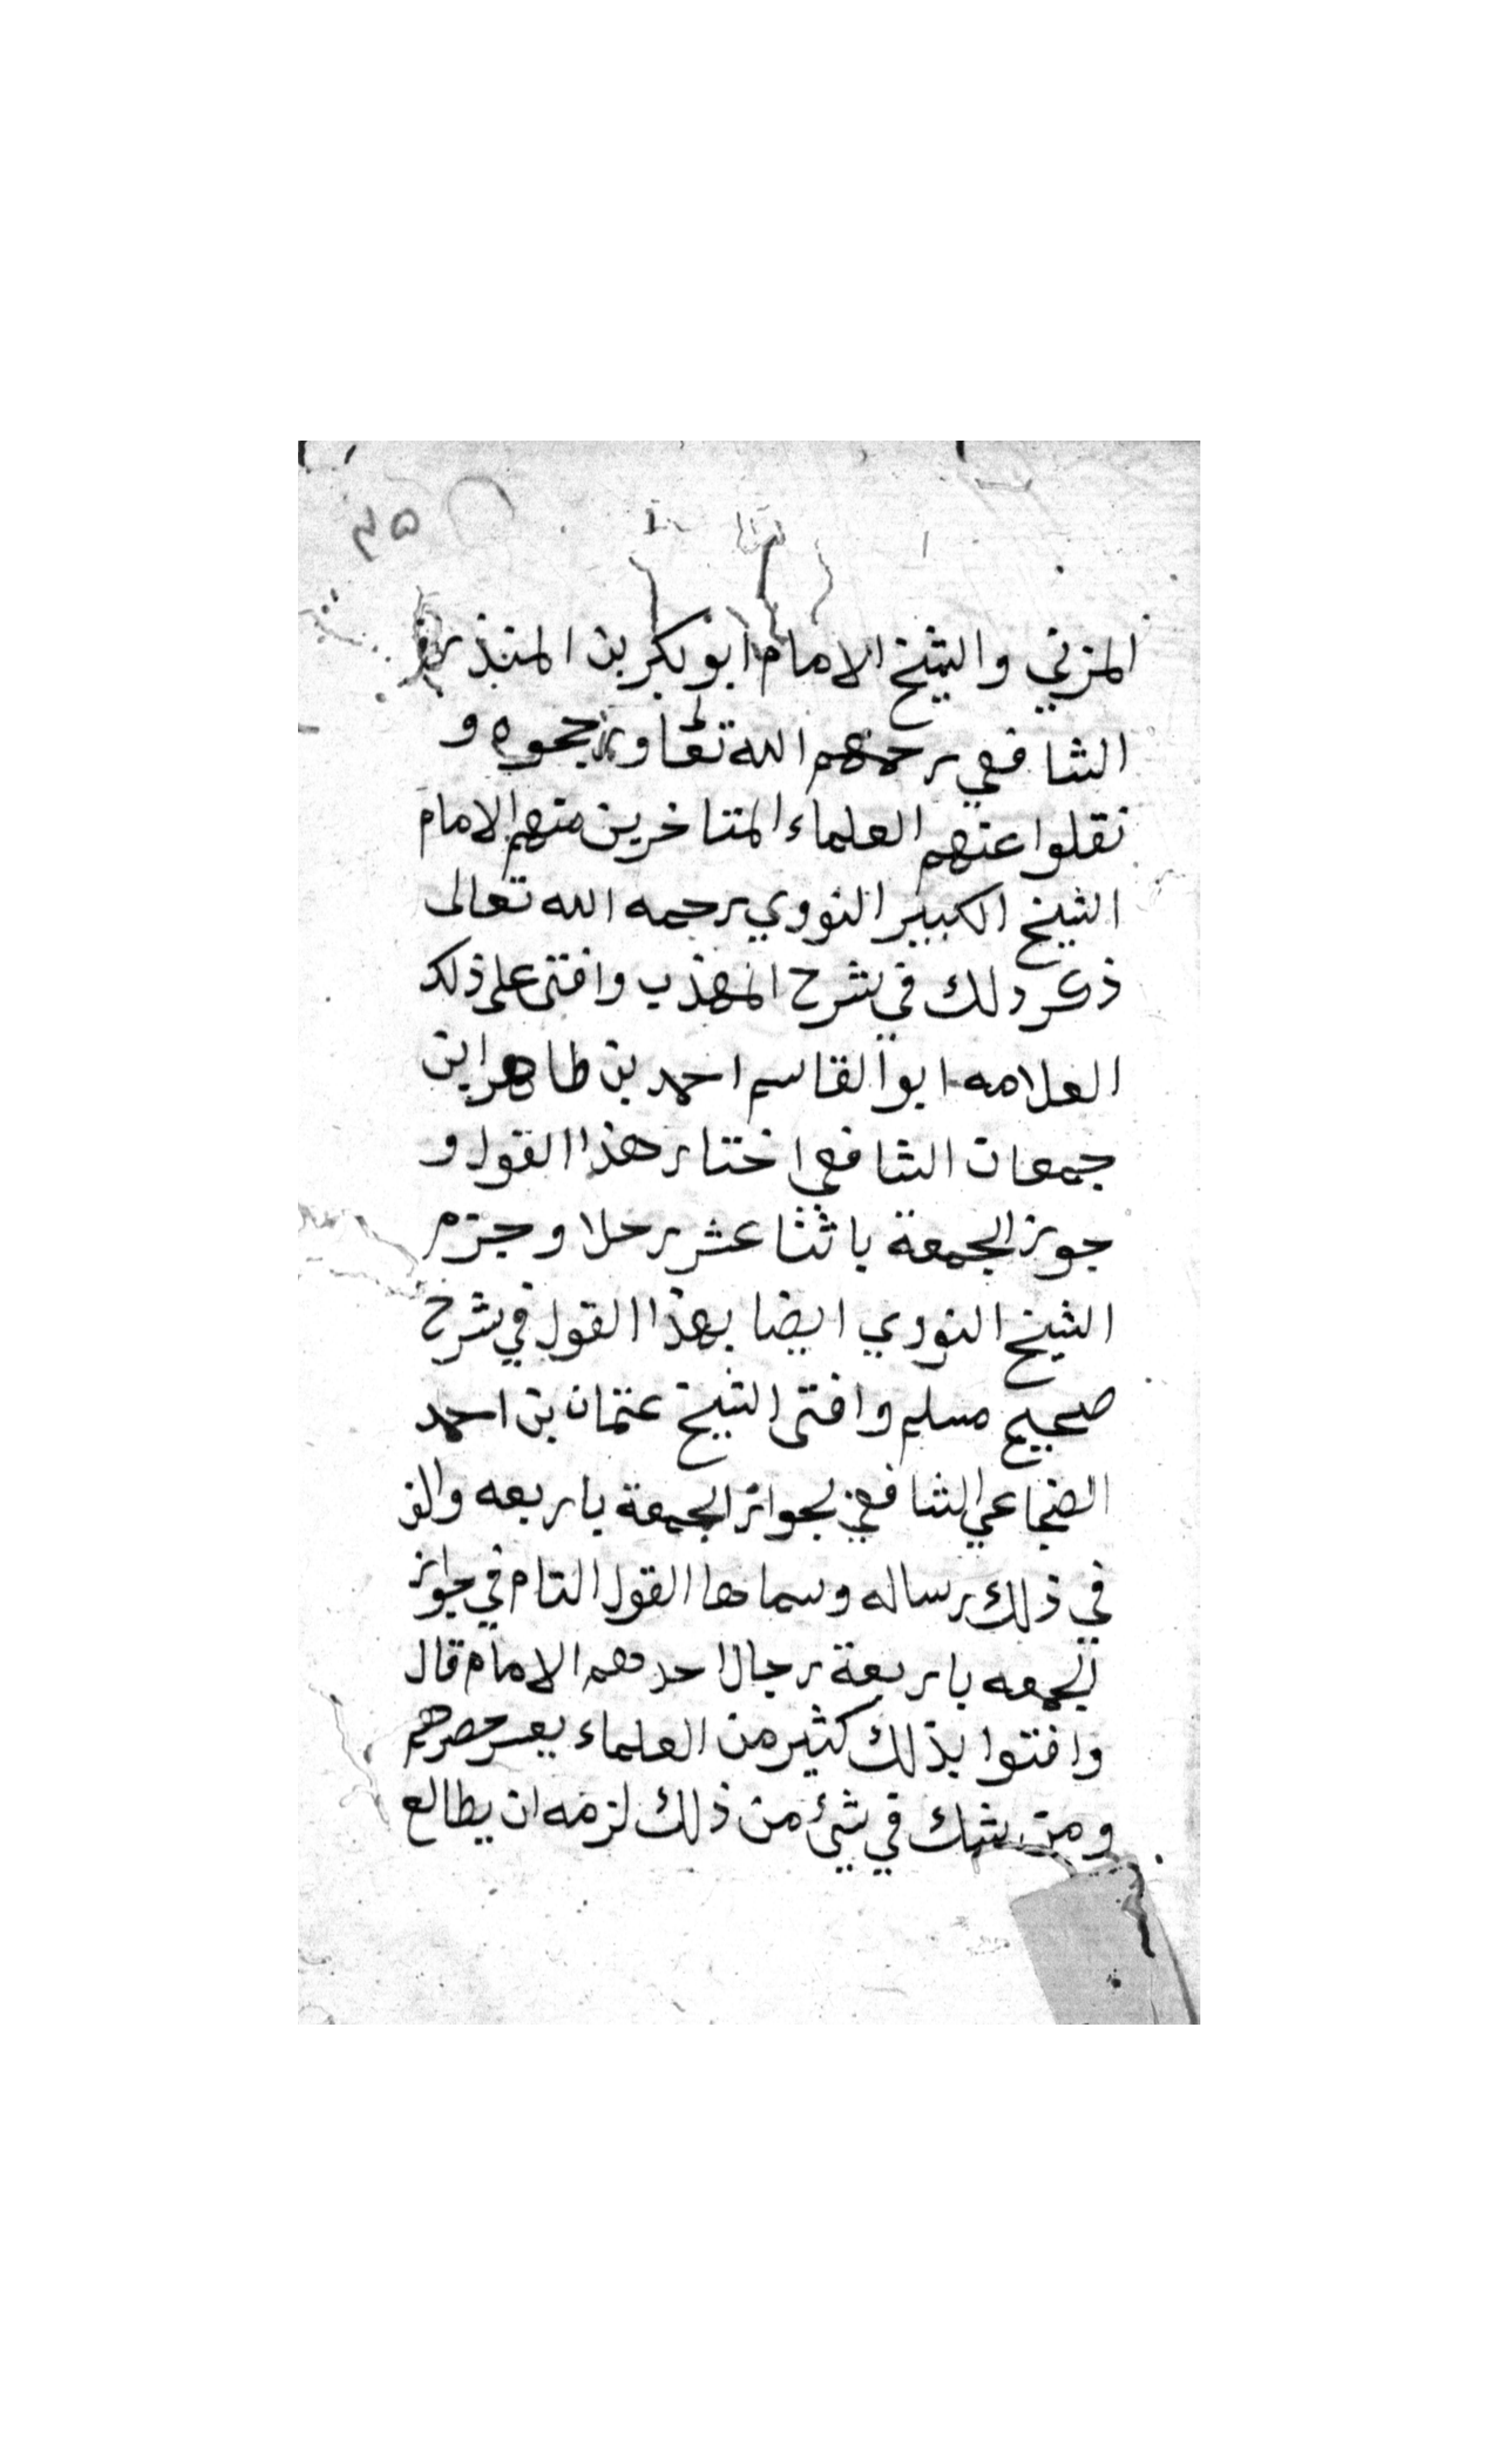 ٢٥
المزني والشيخ الامام ابو بكر بن المنذر
الشافعي رحمهم الله تعا ورجحوه و
نقلوا عنهم العلماء المتاخرين منهم الامام
الشيخ الكبير النووي رحمه الله تعالى
ذكر ذلك في شرح المهذب وافتى على ذلك
العلامه ابو القاسم احمد بن طاهر ابن
جمعان الشافعي اختار هذا القول و
جوز الجمعة باثنا عشر رجلا وجزم
الشيخ النووي ايضا بهذا القول في شرح
صحيح مسلم وافتى الشيخ عثمان بن احمد
الضجاعي الشافعي بجواز الجمعة باربعه والف
في ذلك رساله وسماها القول التام في جواز
الجمعه باربعة رجال احدهم الامام قال
وافتوا بذلك كثير من العلماء يعسر حصرهم
ومن شك في شيء من ذلك لزمه ان يطالع